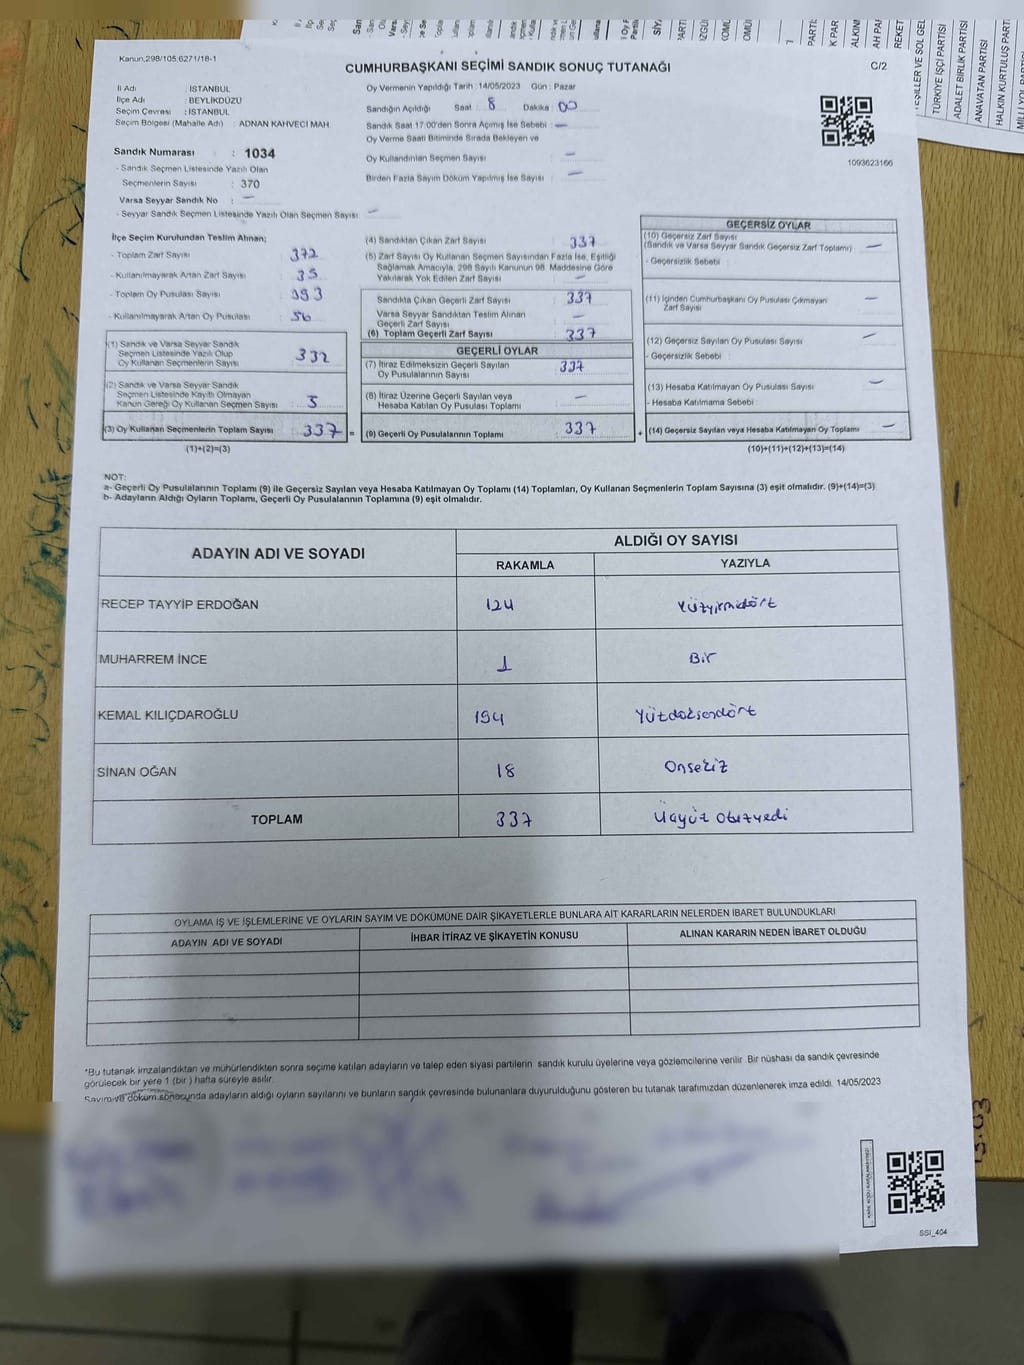 Kanun;298/105;6271/18-1
CUMHURBAŞKANI SEÇİMİ SANDIK SONUÇ TUTANAĞI
C/2
İl Adı : İSTANBUL
İlçe Adı : BEYLİKDÜZÜ
Seçim Çevresi : İSTANBUL
Seçim Bölgesi (Mahalle Adı) : ADNAN KAHVECİ MAH.
Oy Vermenin Yapıldığı Tarih : 14/05/2023 Gün : Pazar
Sandığın Açıldığı Saat : 8 Dakika : 00
Sandık Saat 17:00'den Sonra Açımış İse Sebebi : —
Oy Verme Saati Bitiminde Sırada Bekleyen ve
Oy Kullandırılan Seçmen Sayısı —
Birden Fazla Sayım Döküm Yapılmış İse Sayısı : —
1093623166
Sandık Numarası : 1034
- Sandık Seçmen Listesinde Yazılı Olan
Seçmenlerin Sayısı : 370
Varsa Seyyar Sandık No : —
- Seyyar Sandık Seçmen Listesinde Yazılı Olan Seçmen Sayısı: —
İlçe Seçim Kurulundan Teslim Alınan;
- Toplam Zarf Sayısı : 372
- Kullanılmayarak Artan Zarf Sayısı : 35
- Toplam Oy Pusulası Sayısı : 393
- Kullanılmayarak Artan Oy Pusulası : 56
(1) Sandık ve Varsa Seyyar Sandık
Seçmen Listesinde Yazılı Olup
Oy Kullanan Seçmenlerin Sayısı : 332
(2) Sandık ve Varsa Seyyar Sandık
Seçmen Listesinde Kayıtlı Olmayan
Kanun Gereği Oy Kullanan Seçmen Sayısı : 5
(3) Oy Kullanan Seçmenlerin Toplam Sayısı : 337 =
(1)+(2)=(3)
(4) Sandıktan Çıkan Zarf Sayısı : 337
(5) Zarf Sayısı Oy Kullanan Seçmen Sayısından Fazla İse, Eşitliği
Sağlamak Amacıyla, 298 Sayılı Kanunun 98. Maddesine Göre
Yakılarak Yok Edilen Zarf Sayısı : —
Sandıkta Çıkan Geçerli Zarf Sayısı : 337
Varsa Seyyar Sandıktan Teslim Alınan
Geçerli Zarf Sayısı : —
(6) Toplam Geçerli Zarf Sayısı : 337
GEÇERLİ OYLAR
(7) İtiraz Edilmeksizin Geçerli Sayılan
Oy Pusulalarının Sayısı : 337
(8) İtiraz Üzerine Geçerli Sayılan veya
Hesaba Katılan Oy Pusulası Toplamı : —
(9) Geçerli Oy Pusulalarının Toplamı : 337 +
GEÇERSİZ OYLAR
(10) Geçersiz Zarf Sayısı
(Sandık ve Varsa Seyyar Sandık Geçersiz Zarf Toplamı) : —
- Geçersizlik Sebebi :
(11) İçinden Cumhurbaşkanı Oy Pusulası Çıkmayan
Zarf Sayısı : —
(12) Geçersiz Sayılan Oy Pusulası Sayısı : —
- Geçersizlik Sebebi :
(13) Hesaba Katılmayan Oy Pusulası Sayısı : —
- Hesaba Katılmama Sebebi :
(14) Geçersiz Sayılan veya Hesaba Katılmayan Oy Toplamı : —
(10)+(11)+(12)+(13)=(14)
NOT:
a- Geçerli Oy Pusulalarının Toplamı (9) ile Geçersiz Sayılan veya Hesaba Katılmayan Oy Toplamı (14) Toplamları, Oy Kullanan Seçmenlerin Toplam Sayısına (3) eşit olmalıdır. (9)+(14)=(3)
b- Adayların Aldığı Oyların Toplamı, Geçerli Oy Pusulalarının Toplamına (9) eşit olmalıdır.
ADAYIN ADI VE SOYADI
ALDIĞI OY SAYISI
RAKAMLA YAZIYLA
RECEP TAYYİP ERDOĞAN 124 Yüzyirmidört
MUHARREM İNCE 1 Bir
KEMAL KILIÇDAROĞLU 194 Yüzdoksandört
SİNAN OĞAN 18 Onsekiz
TOPLAM 337 Üçyüz otuzyedi
OYLAMA İŞ VE İŞLEMLERİNE VE OYLARIN SAYIM VE DÖKÜMÜNE DAİR ŞİKAYETLERLE BUNLARA AİT KARARLARIN NELERDEN İBARET BULUNDUKLARI
ADAYIN ADI VE SOYADI İHBAR İTİRAZ VE ŞİKAYETİN KONUSU ALINAN KARARIN NEDEN İBARET OLDUĞU
*Bu tutanak imzalandıktan ve mühürlendikten sonra seçime katılan adayların ve talep eden siyasi partilerin sandık kurulu üyelerine veya gözlemcilerine verilir. Bir nüshası da sandık çevresinde
görülecek bir yere 1 (bir ) hafta süreyle asılır.
Sayım ve döküm sonucunda adayların aldığı oyların sayılarını ve bunların sandık çevresinde bulunanlara duyurulduğunu gösteren bu tutanak tarafımızdan düzenlenerek imza edildi. 14/05/2023
SSI_404
YEŞİLLER VE SOL GEL
TÜRKİYE İŞÇİ PARTİSİ
ADALET BİRLİK PARTİSİ
ANAVATAN PARTİSİ
HALKIN KURTULUŞ PART